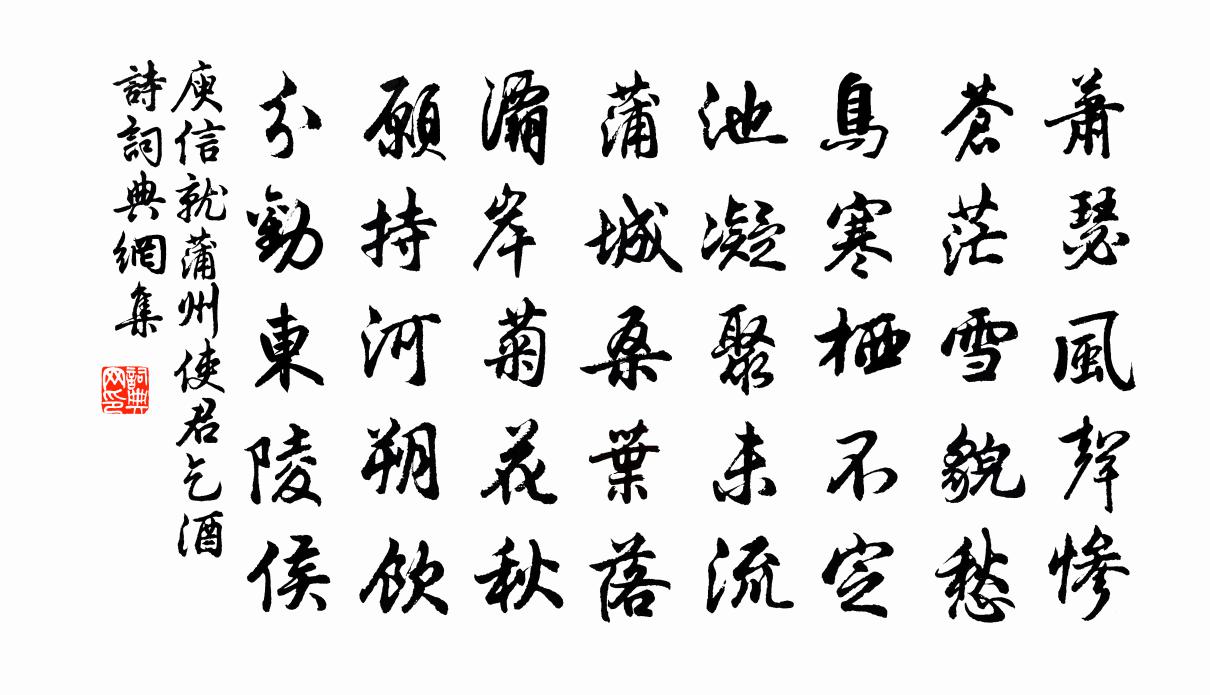 蕭瑟風聲慘
蒼茫雪貌愁
鳥寒栖不定
池凝聚未流
蒲城桑葉落
灞岸菊花秋
願持河朔飲
分勸東陵侯
庾信就蒲州使君乞酒
詩詞典網集
詞典网印